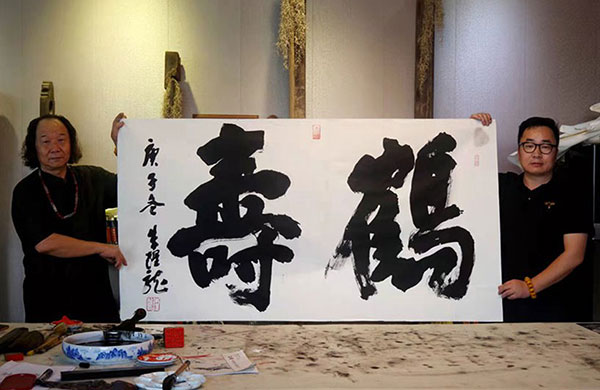 鶴壽
庚子冬